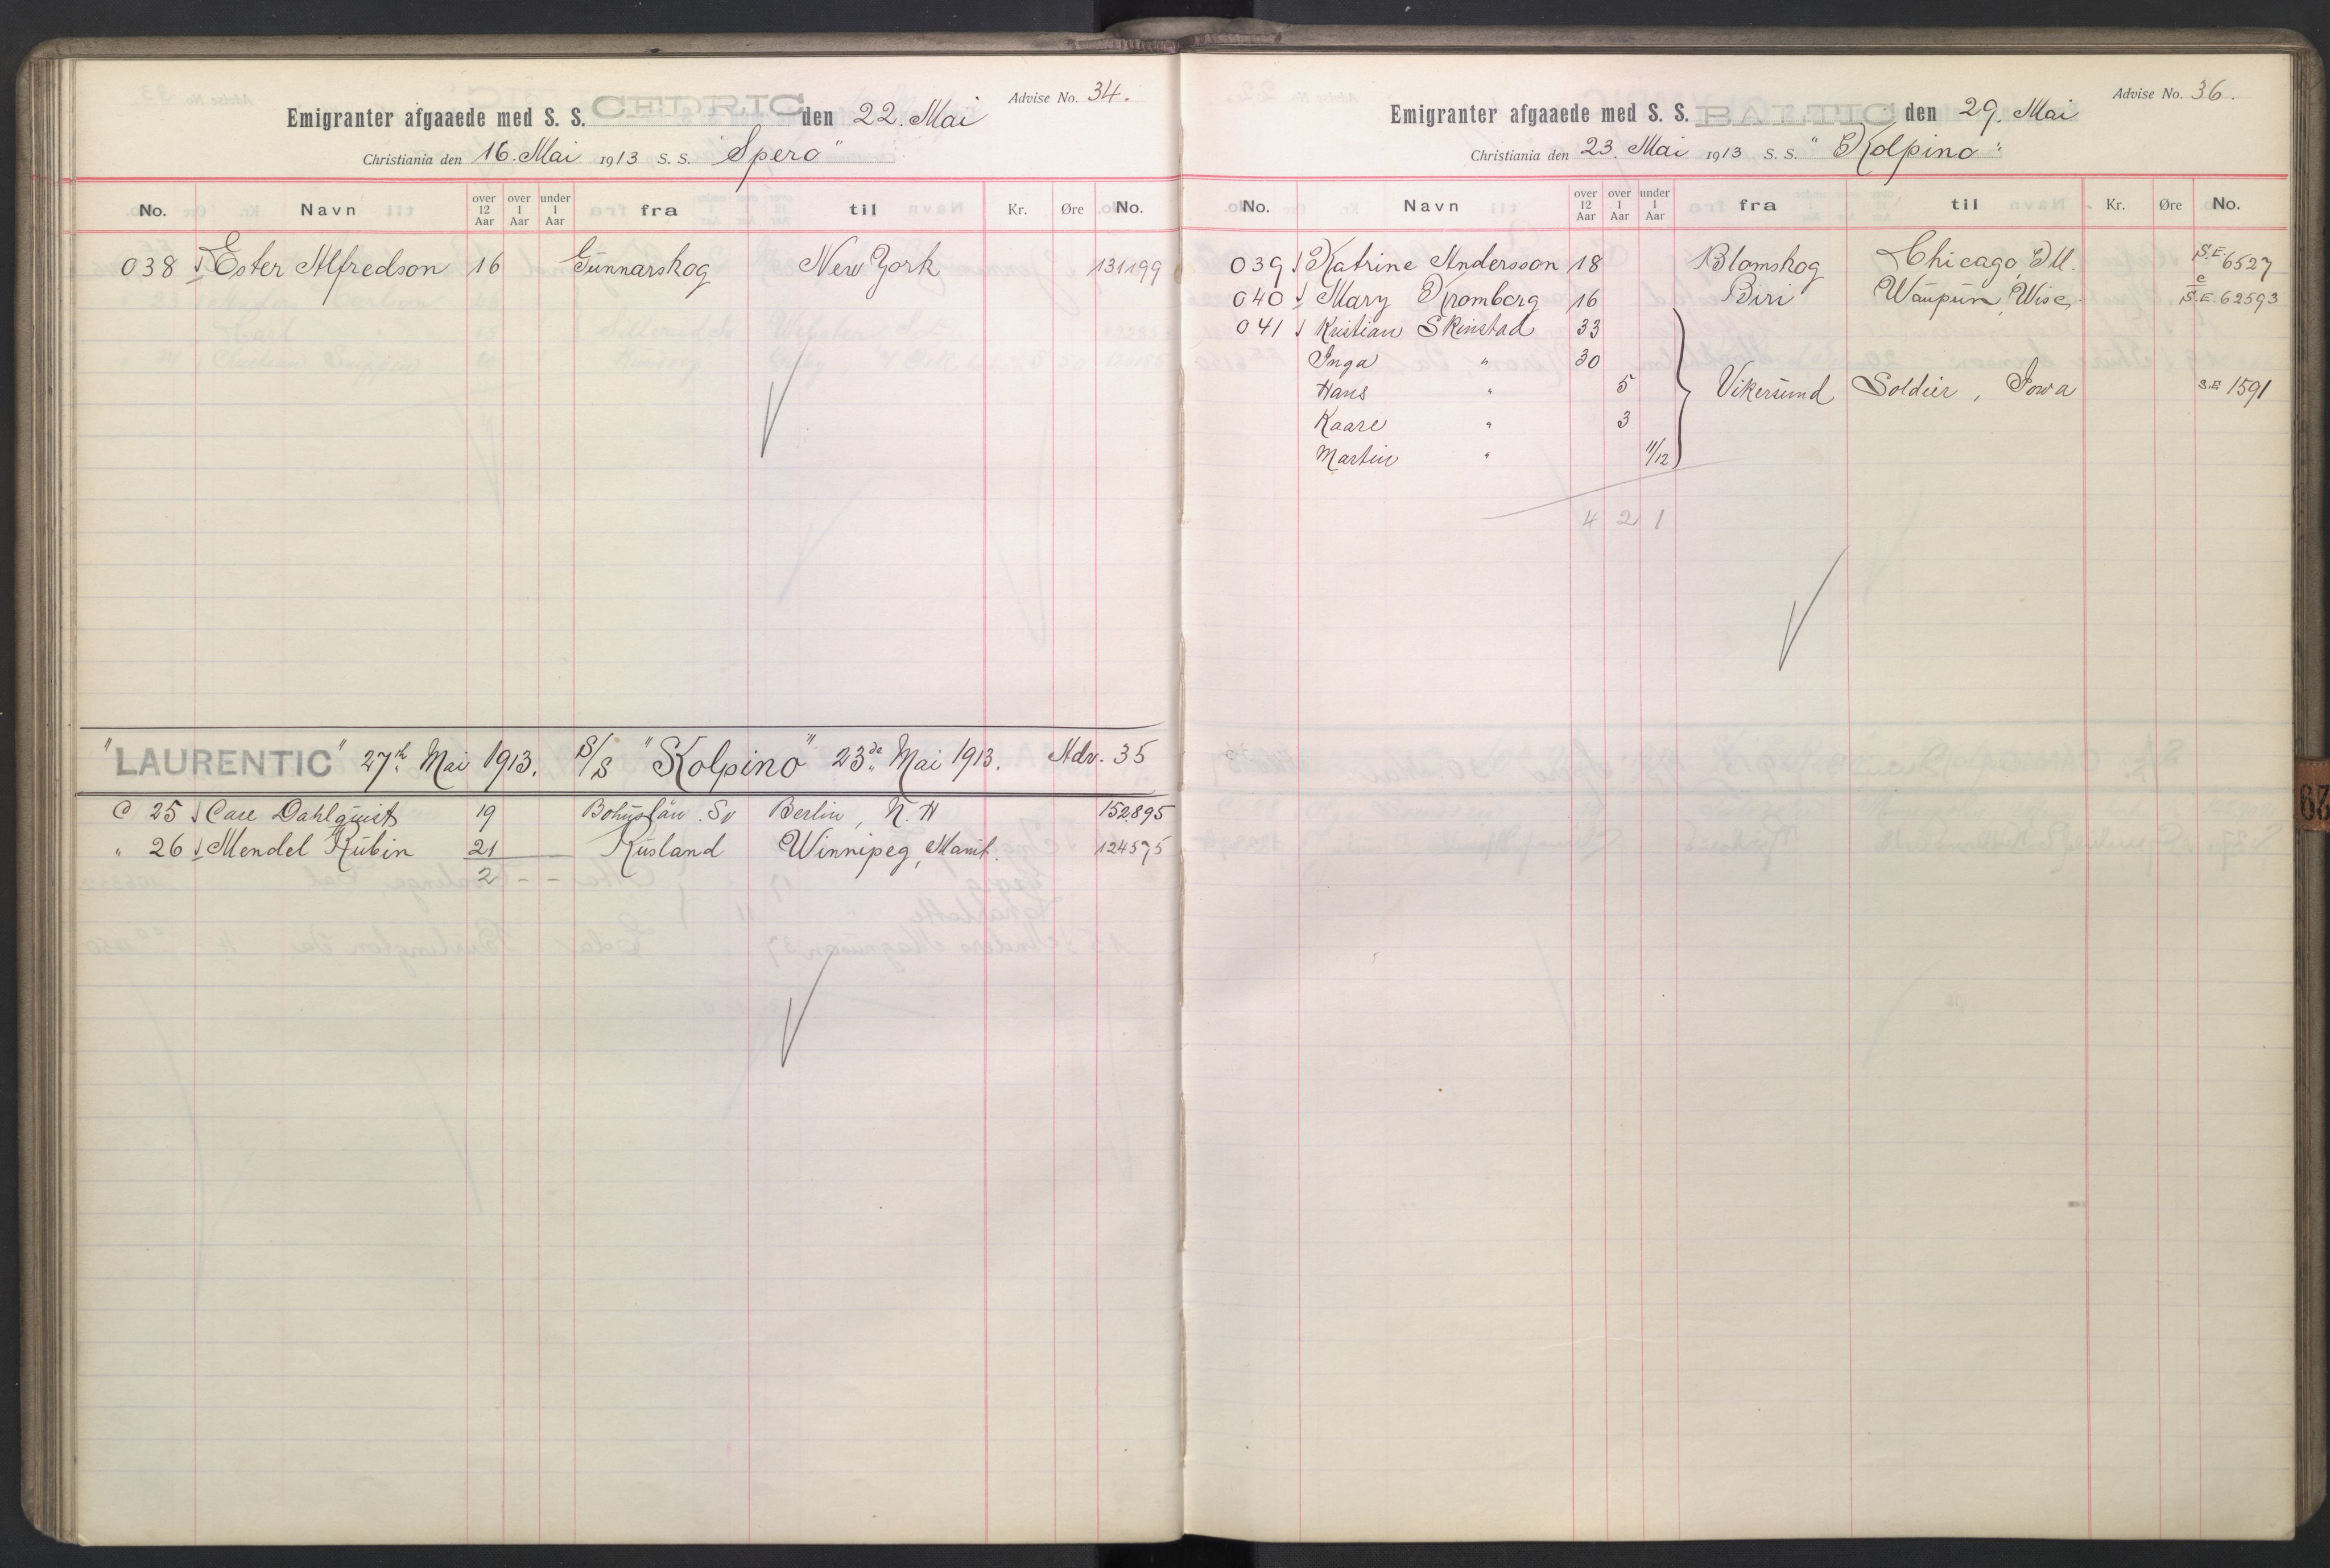 Advise No. 34.
Emigranter afgaaede med S. S. CEDRIC den 22. Mai
Christiania den 16. Mai 1913 S. S. "Spero"
No. Navn over 12 Aar over 1 Aar under 1 Aar fra til Kr. Øre No.
038 Ester Alfredson 16 Gunnarskog New York 131199
"LAURENTIC" 27th Mai 1913. S/S "Kolpino" 23de Mai 1913. Adv. 35
C 25 Carl Dahlquist 19 Bohuslän. Sv Berlin, N. H 152895
" 26 Mendel Rubin 21 Rusland Winnipeg, Manit. 124575
2 - -
Advise No. 36.
Emigranter afgaaede med S. S. BALTIC den 29. Mai
Christiania den 23. Mai 1913 S. S. "Kolpino"
No. Navn over 12 Aar over 1 Aar under 1 Aar fra til Kr. Øre No.
039 Katrine Andersson 18 Blomskog Chicago, Ill. S.E. 6527
040 Mary 16 Biri Waupun, Wisc. S.E. 62593
041 Kristian Skinstad 33
Inga " 30
Hans " 5 Vikersund Soldier, Iowa S.E. 1591
Kaare " 3
Martin " 11/12
4 2 1
67